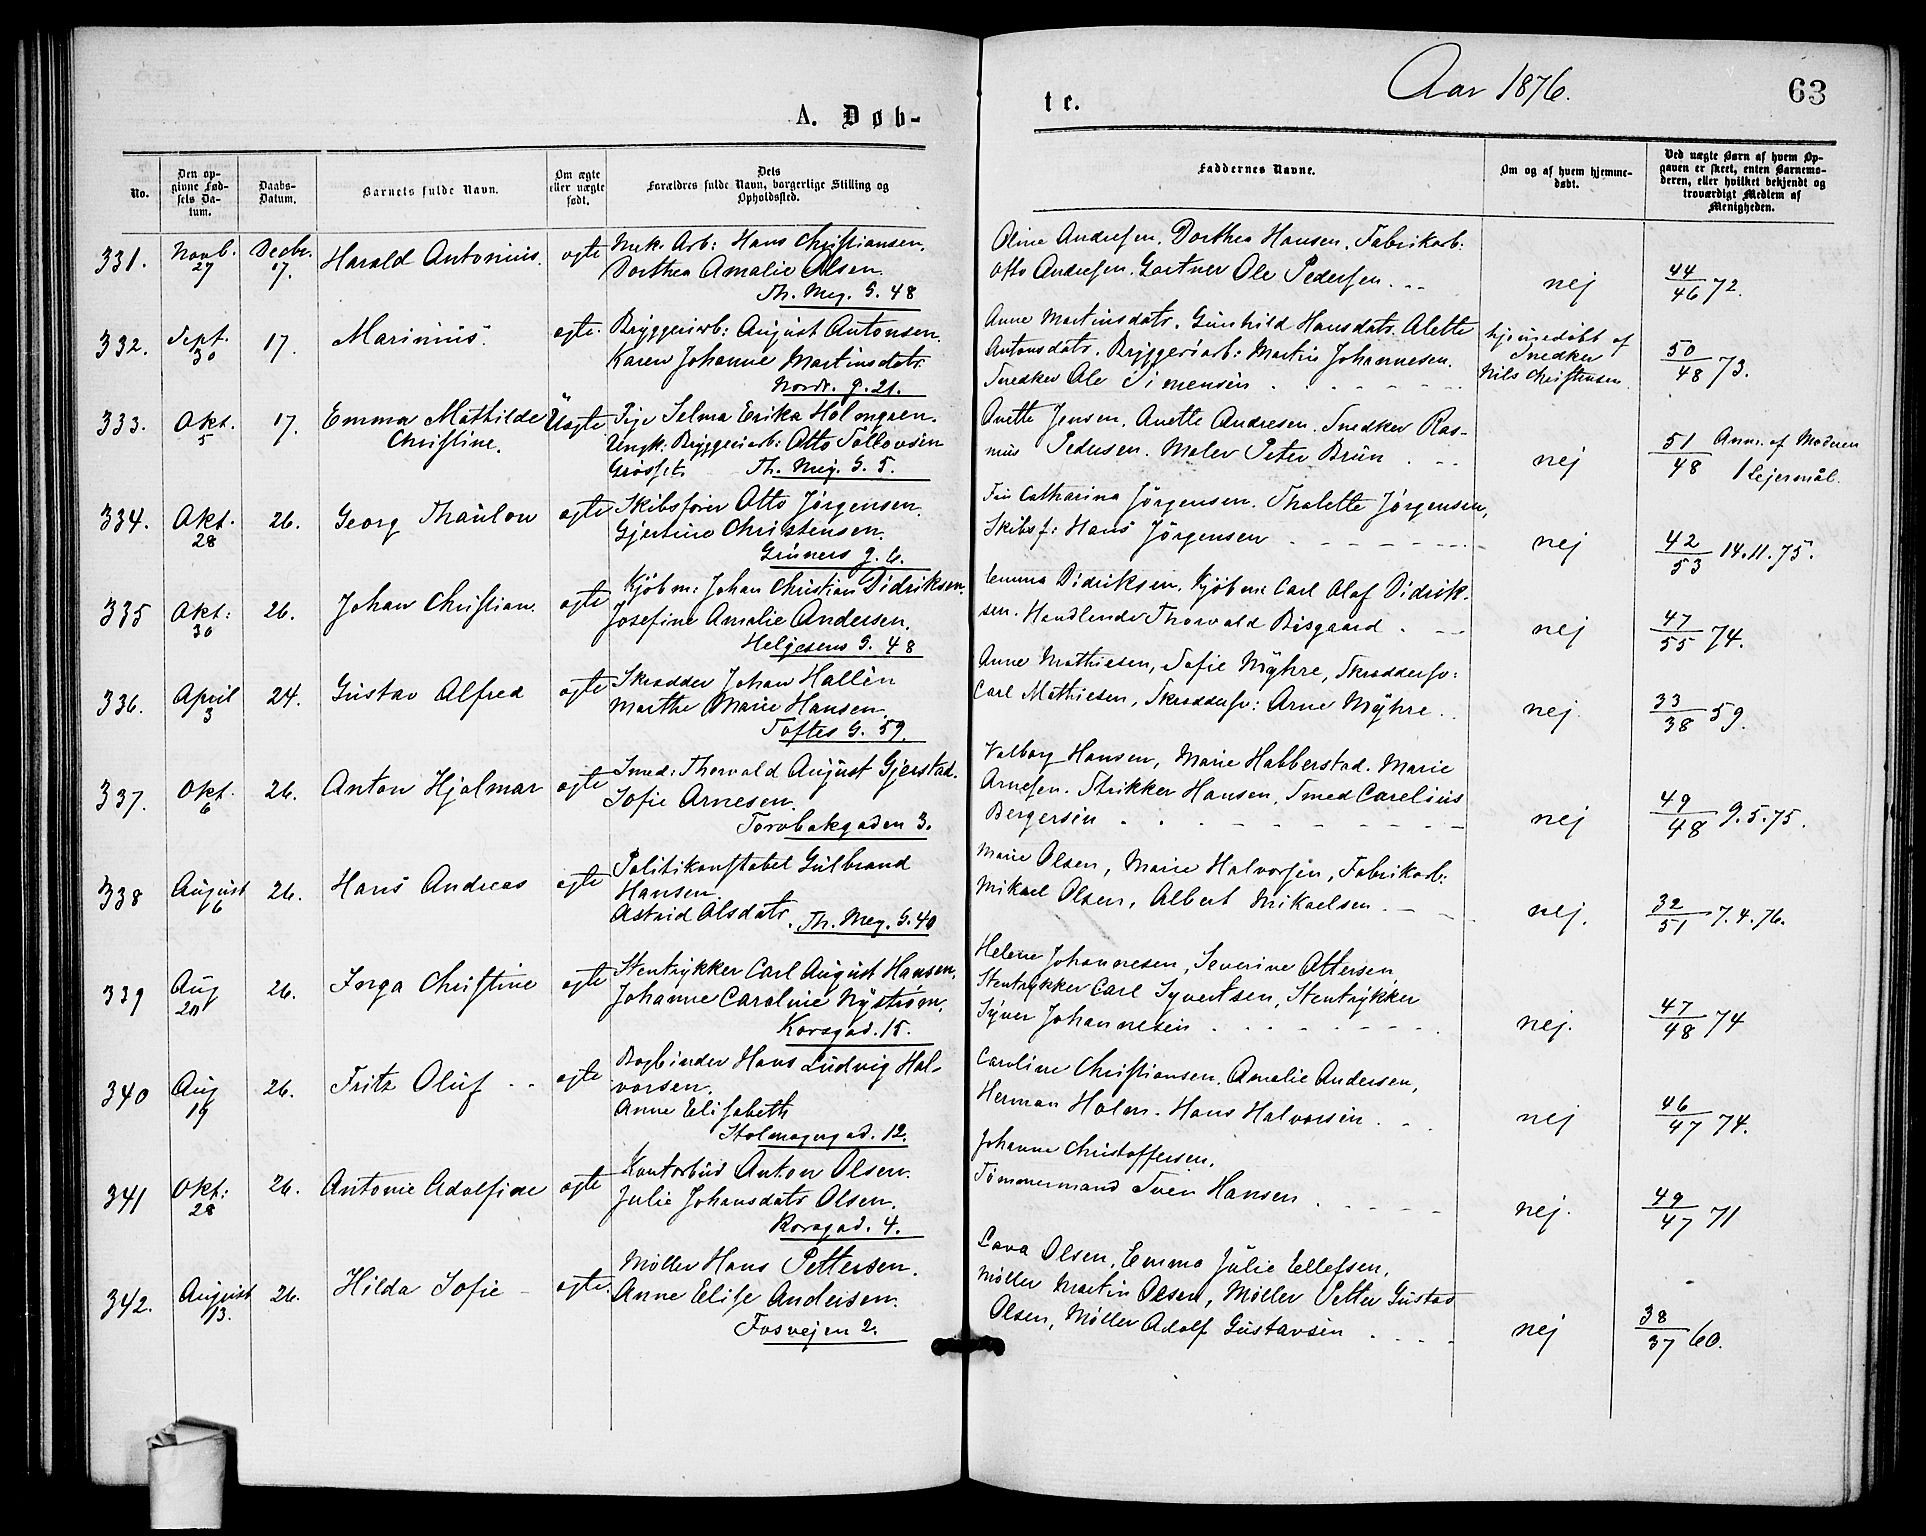 Aar 1876.
63
A. Døb-
te.
No.
Den op-
givne Fød-
sels Da-
tum.
Daabs-
Datum.
Barnets fulde Navn.
Om ægte
eller uægte
født.
Dets
Forældres fulde Navn, borgerlige Stilling og
Opholdssted.
Faddernes Navne.
Om og af hvem hjemme-
døbt.
Ved uægte Børn af hvem Op-
gaven er skeet, enten Barnemo-
deren, eller hvilket bekjendt og
troværdigt Medlem af
Menigheden.
331.
Novb.
27
Decbr.
17.
Harald Antonius.
ægte
Mek. Arb: Hans Christiansen.
Dorthea Amalie Olsen.
Th. Mey. G. 48
Oline Andresen. Dorthea Hansen. Fabrikarb:
Otto Andresen. Gartner Ole Pedersen. . .
nej
44/46 72.
332.
Sept.
30
17.
Marinius.
ægte.
Bryggeriarb: August Antonsen.
Karen Johanne Martinsdatr.
Nordr. g. 21.
Anne Martinsdatr. Gunhild Hansdatr. Alette
Antonsdatr. Bryggeriarb: Martin Johannesen.
Snedker Ole Simensen
hjemmedøbt af
Snedker
Nils Christensen.
50/48 73.
333.
Okt.
5
17.
Emma Mathilde
Christine.
Uægte
Pige Selma Erika Holmgren.
Ungk. Bryggeriarb: Otto Tollovsen
Grosset. Th. Mey. G. 5.
Anette Jensen. Anette Andresen. Snedker Ras-
mus Pedersen. Maler Peter Brun
nej
51/48 Ann. af Moderen
1 Lejermål.
334.
Okt.
28
26.
Georg Thaulow
ægte
Skibsfører Otto Jørgensen.
Gjertine Christensen.
Grüners g. 6.
Catharina Jørgensen. Thalette Jørgensen,
Skibsf: Hans Jørgensen
nej
42/53 14.11.75.
335
Okt:
30
26.
Johan Christian.
ægte
Kjøbm: Johan Christian Didriksen.
Josefine Amalie Andersen.
Helgesens G. 48
Emma Didriksen. Kjøbm: Carl Olaf Didrik-
sen. Handlende Thorvald Bisgaard
nej
47/55 74.
336.
April
3
24.
Gustav Alfred
ægte
Skrædder Johan Hallén
Marthe Marie Hansen.
Toftes G. 59.
Anne Mathiesen, Sofie Myhre, Skræddersv:
Carl Mathiesen, Skræddersv: Arne Myhre.
nej.
33/38 59.
337.
Okt.
6
26.
Anton Hjalmar
ægte
Smed: Thorvald August Gjerstad.
Sofie Arnesen.
Torvbakgaden 3.
Valborg Hansen, Marie Habberstad. Marie
Arnesen. Strikker Hansen, Smed Carelius
Bergersen
nej
49/48 9.5.75.
338
August
16
26.
Hans Andreas
ægte
Politikonstabel Gulbrand
Hansen.
Astrid Olsdatr. Th. Mey. G. 40
Marie Olsen, Marie Halvorsen, Fabrikarb:
Mikael Olsen, Albert Mikaelsen.
nej.
32/51 7.4.76.
339
Aug
20
26.
Inga Christine
ægte
Stentrykker Carl August Hansen.
Johanne Caroline Nystrøm.
Korsgad. 15.
Helene Johannesen, Severine Ottersen
Stentrykker Carl Syvertsen, Stentrykker
Syver Johannesen
nej.
47/48 74
340
Aug
19
26.
Fritz Oluf
ægte
Bogbinder Hans Ludvig Hal-
vorsen.
Anne Elisabeth
Stolmagergad. 12.
Caroline Christiansen. Amalie Andersen,
Herman Holm. Hans Halvorsen
nej
46/47 74.
341
Okt:
28
26.
Antonie Adolfine
ægte
Kontorbud Anton Olsen.
Julie Johansdatr Olsen.
Korsgad. 4.
Johanne Christoffersen.
Tømmermand Sven Hansen
nej.
49/47 71
342.
August
13.
26.
Hilda Sofie
ægte.
Møller Hans Pettersen.
Anne Elise Andersen.
Fosvejen 2.
Lava Olsen, Emma Julie Ellefsen,
Møller Martin Olsen, Møller Petter Gustad
Olsen, Møller Adolf Gustavsen
nej
38/37 60.